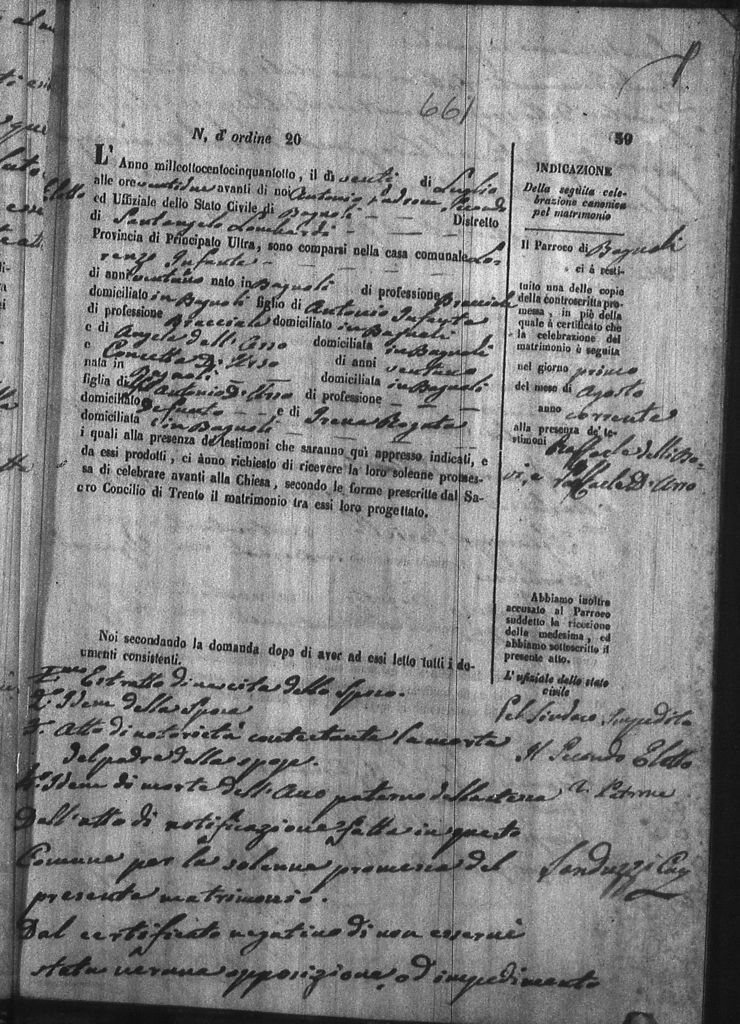 661
N. d'ordine 20
39
L'Anno millottocentocinquantotto, il dì venti di Luglio
alle ore ventidue avanti di noi Antonio Secondo Eletto
ed Uffiziale dello Stato Civile di Bagnoli Distretto
di Santangelo Lombardi
Provincia di Principato Ultra, sono comparsi nella casa comunale Lo-
renzo Infante
di anni ventuno nato in Bagnoli di professione Bracciale
domiciliato in Bagnoli figlio di Antonio Infante
di professione Bracciale domiciliato in Bagnoli
e di Angela dell'Osso domiciliata in Bagnoli
e Concetta Di Urso di anni ventuno
nata in Bagnoli domiciliata in Bagnoli
figlia di Antonio Di Urso di professione
domiciliato defunto e di Irena Rogata
domiciliata in Bagnoli
i quali alla presenza de'testimoni che saranno qui appresso indicati, e
da essi prodotti, ci ànno richiesto di ricevere la loro solenne promes-
sa di celebrare avanti alla Chiesa, secondo le forme prescritte dal Sa-
cro Concilio di Trento il matrimonio tra essi loro progettato.
Noi secondando la domanda dopo di aver ad essi letto tutti i do-
umenti consistenti.
Estratto di nascita dello Sposo.
2° Idem della Sposa
3° Atto di notorietà contestante la morte
del padre della sposa.
4° Idem di morte dell'Avo paterno della stessa
Dall'atto di notificazione fatta in questo
Comune per la solenne promessa del
presente matrimonio.
Dal certificato negativo di non esservi
stata veruna opposizione, od impedimento
INDICAZIONE
Della seguita cele-
brazione canonica
pel matrimonio
Il Parroco di Bagnoli
ci à resti-
tuito una delle copie
della controscritta pro-
messa, in piè della
quale à certificato che
la celebrazione del
matrimonio è seguita
nel giorno primo
del mese di Agosto
anno corrente
alla presenza de' te-
stimoni Raffaele
e Raffaele Di Urso
Abbiamo inoltre
accusato al Parroco
suddetto la ricezione
della medesima, ed
abbiamo sottoscritto il
presente atto.
L'ufiziale dello stato
civile
Pel Sindaco Impedito
Il Secondo Eletto